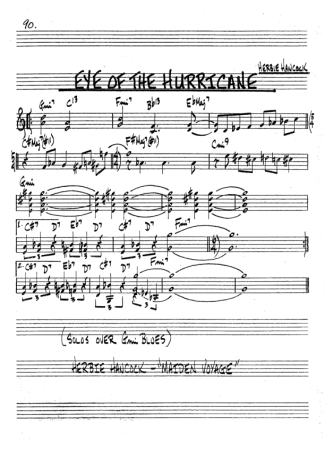 90.
HERBIE HANCOCK
EYE OF THE HURRICANE
Gmi7 C13 Fmi7 Bb13 EbMaj7
C#Maj7(#11) F#Maj7(#11) Cmi9
Gmi
1. C#7 D7 Eb7 D7 C#7 D7 Fmi7
2. C#7 D7 Eb7 D7 C#7 D7 Fmi7
3 3 3
(SOLOS OVER Gmi BLUES)
HERBIE HANCOCK - "MAIDEN VOYAGE"